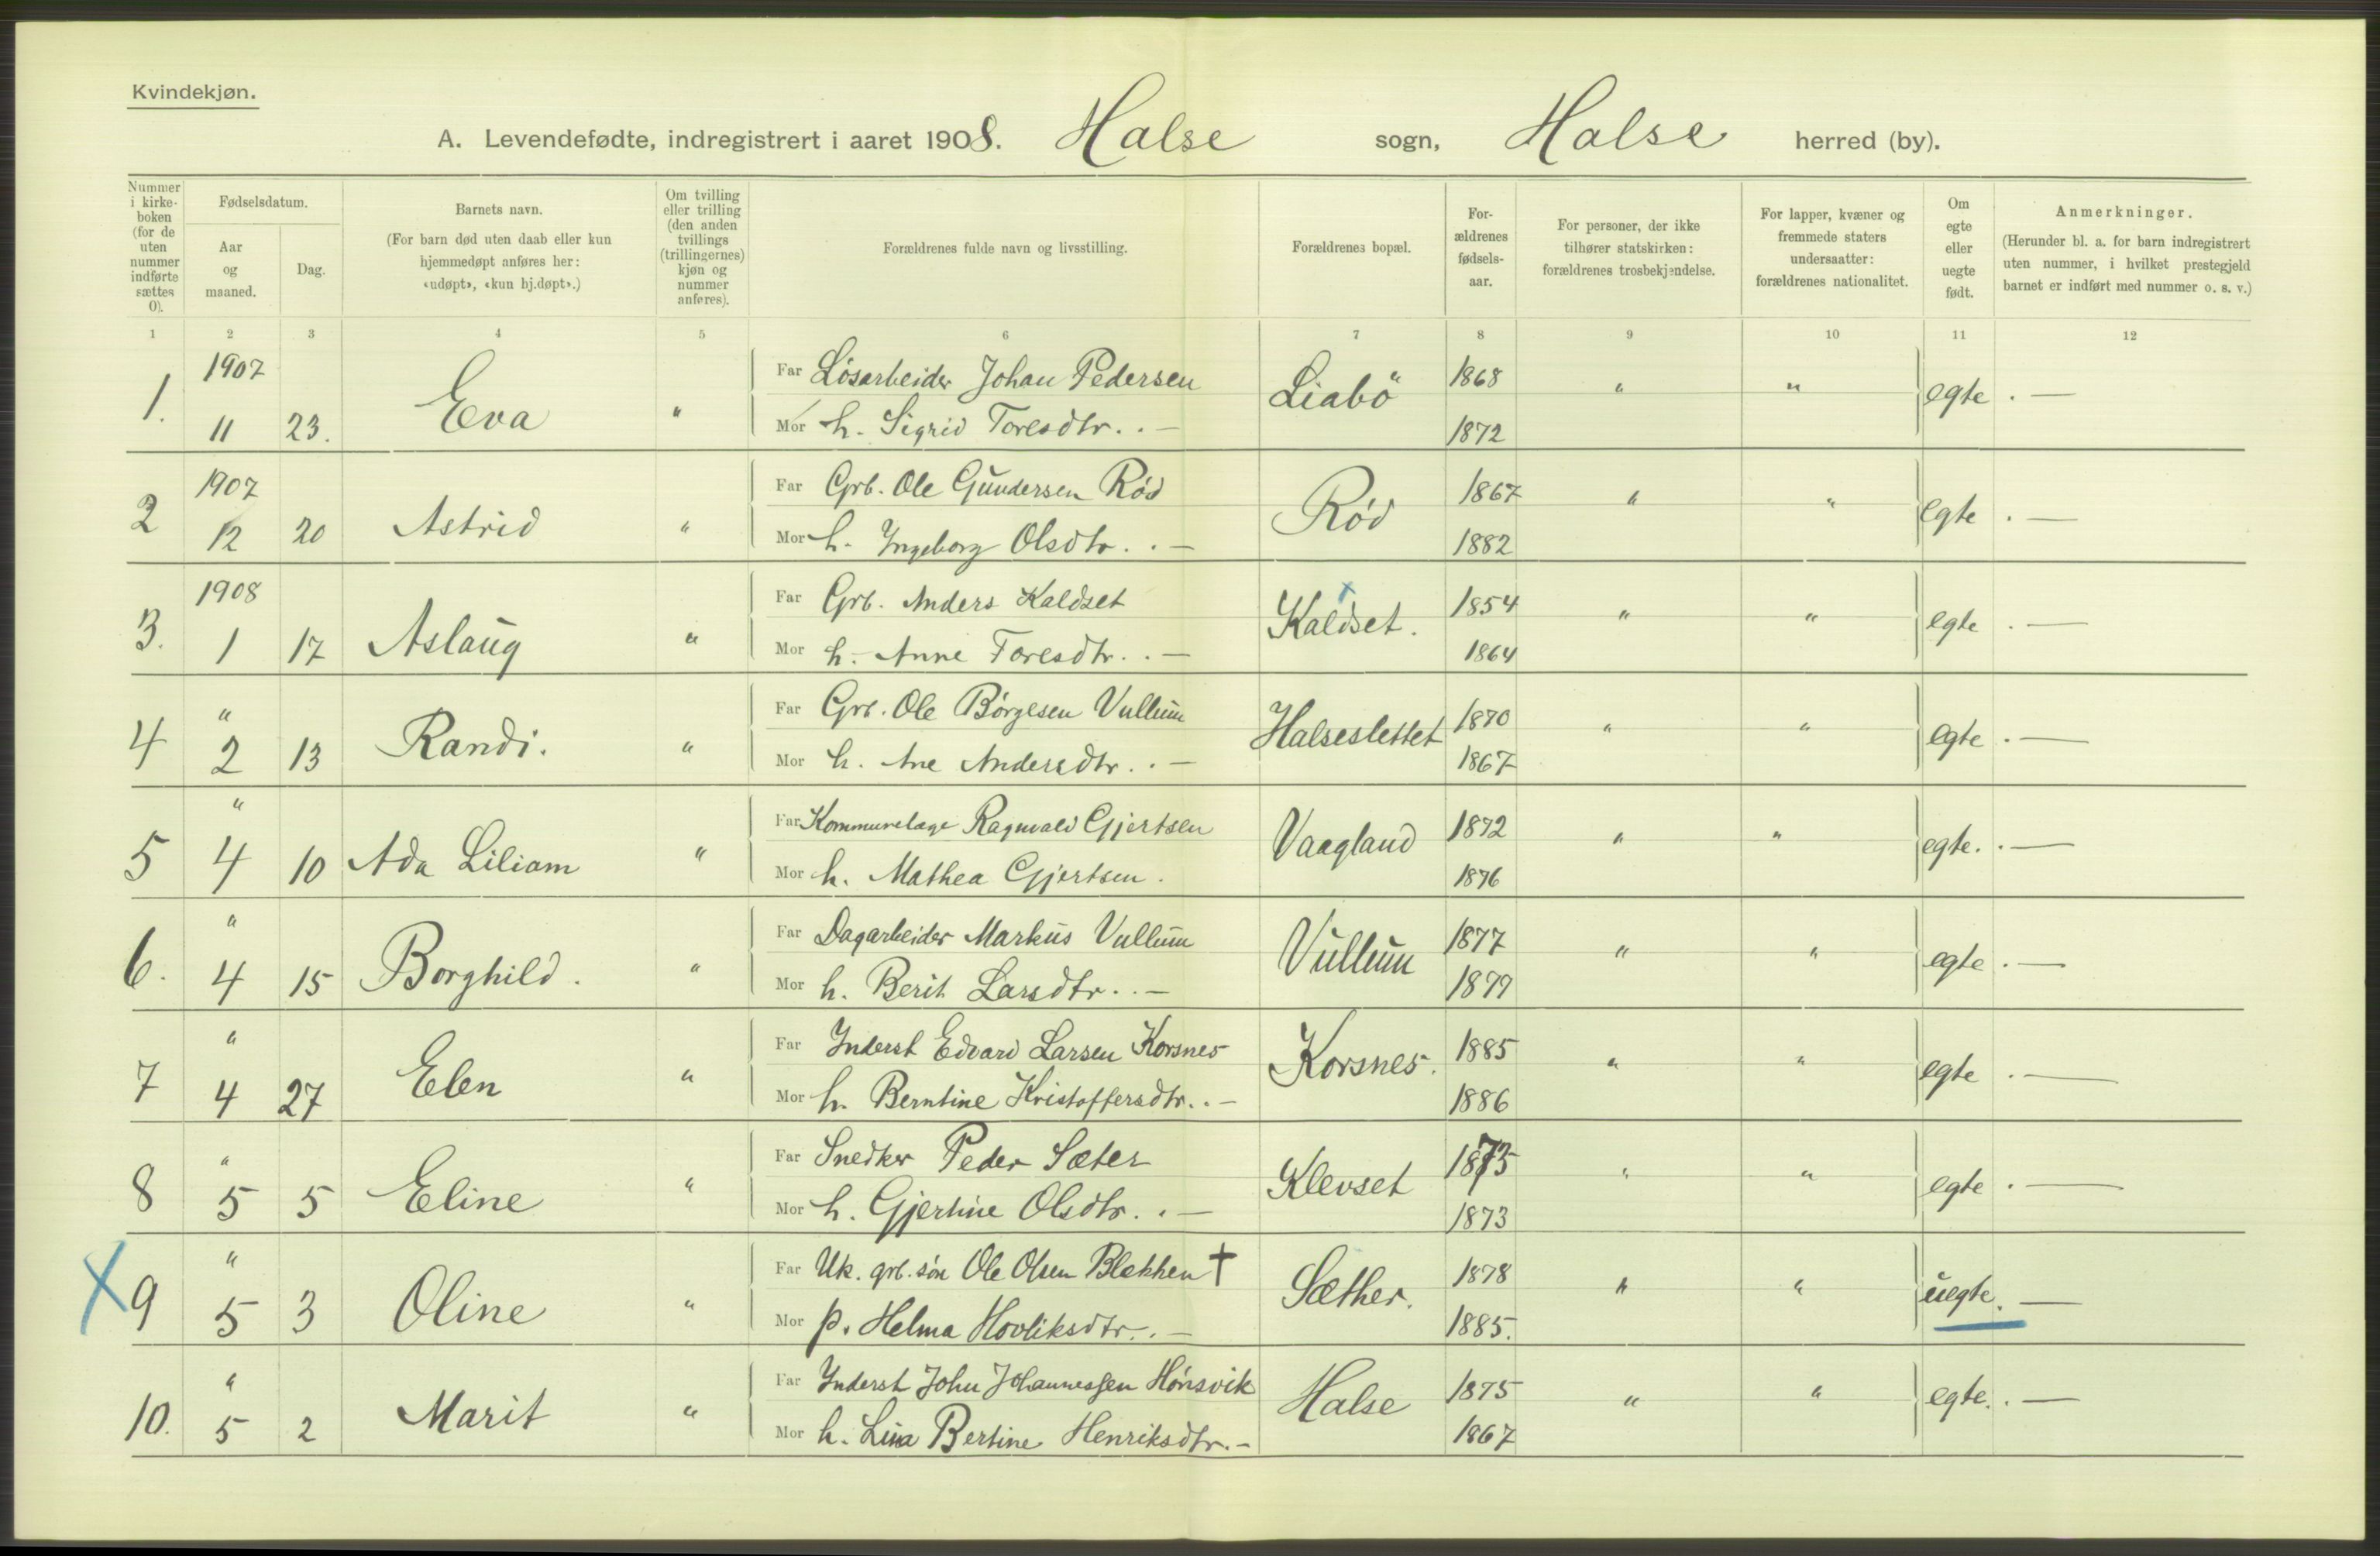 Kvindekjøn.
A. Levendefødte, indregistrert i aaret 1908. Halse sogn, Halse herred (by).
Nummer i kirke-boken (for de uten nummer indførte sættes 0).
Fødselsdatum.
Aar og maaned.
Dag.
Barnets navn.
(For barn død uten daab eller kun hjemmedøpt anføres her: «udøpt», «kun hj.døpt».)
Om tvilling eller trilling (den anden tvillings (trillingernes) kjøn og nummer anføres).
Forældrenes fulde navn og livsstilling.
Forældrenes bopæl.
For-ældrenes fødsels-aar.
For personer, der ikke tilhører statskirken: forældrenes trosbekjendelse.
For lapper, kvæner og fremmede staters undersaatter: forældrenes nationalitet.
Om egte eller uegte født.
Anmerkninger.
(Herunder bl. a. for barn indregistrert uten nummer, i hvilket prestegjeld barnet er indført med nummer o. s. v.)
1 2 3 4 5 6 7 8 9 10 11 12
1907 Far Løsarbeider Johan Pedersen 1868
1. 11 23. Eva " Liabö " " egte . —
Mor h. Sigrid Toresdtr. . — 1872
1907 Far Grb. Ole Gundersen Rød 1867
2 12 20 Astrid " Rød " " egte . —
Mor h. Ingeborg Olsdtr. . — 1882
1908 Far Grb. Anders Kaldset 1854
3. 1 17 Aslaug " Kaldset. " " egte . —
Mor h. Anne Toresdtr. . — 1864
" Far Grb. Ole Børgesen Vullum 1870
4 2 13 Randi. " Halseslettet " " egte . —
Mor h. Ane Andersdtr. . — 1867
" Far Kommunelæge Ragnvald Gjertsen 1872
5 4 10 Ada Liliam " Vaagland " " egte. . —
Mor h. Mathea Gjertsen. 1876
" Far Dagarbeider Markus Vullum 1877
6. 4 15 Borghild. " Vullum " " egte . —
Mor h. Berit Larsdtr. . — 1879
" Far Inderst Edvard Larsen Korsnes 1885
7 4 27 Elen " Korsnes. " " egte . —
Mor h. Berntine Kristoffersdtr. . — 1886
" Far Snedker Peder Sæter 1873
8 5 5 Eline " Klevset " " egte . —
Mor h. Gjertine Olsdtr. . — 1873
" Far Uk. grb. søn Ole Olsen Blekken † 1878
X 9 5 3 Oline " Sæther. " " uegte. —
Mor p. Helma Hovliksdtr. . — 1885.
" Far Inderst John Johannessen Hønsvik 1875
10. 5 2 Marit " Halse " " egte. . —
Mor h. Lina Bertine Henriksdtr. — 1867